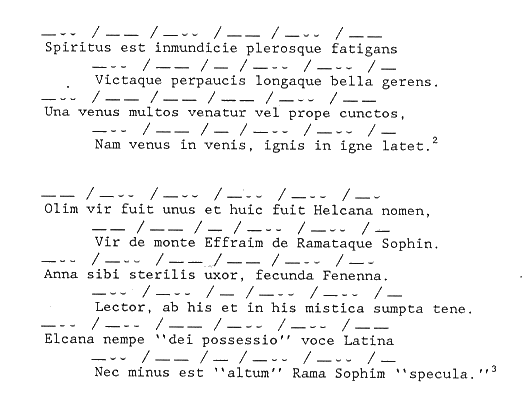 — ᴗ ᴗ / — — / — ᴗ ᴗ / — — / — ᴗ ᴗ / — —
Spiritus est inmundicie plerosque fatigans
— ᴗ ᴗ / — — / — / — ᴗ ᴗ / — ᴗ ᴗ / —
Victaque perpaucis longaque bella gerens.
— ᴗ ᴗ / — — / — — / — — / — ᴗ ᴗ / — —
Una venus multos venatur vel prope cunctos,
— ᴗ ᴗ / — — / — / — ᴗ ᴗ / — ᴗ ᴗ / —
Nam venus in venis, ignis in igne latet.²
— — / — ᴗ ᴗ / — ᴗ ᴗ / — ᴗ ᴗ / — ᴗ ᴗ / — ᴗ
Olim vir fuit unus et huic fuit Helcana nomen,
— — / — — / — / — ᴗ ᴗ / — ᴗ ᴗ / —
Vir de monte Effraim de Ramataque Sophin.
— ᴗ ᴗ / — ᴗ ᴗ / — — / — — / — ᴗ ᴗ / — ᴗ
Anna sibi sterilis uxor, fecunda Fenenna.
— ᴗ ᴗ / — ᴗ ᴗ / — / — ᴗ ᴗ / — ᴗ ᴗ / —
Lector, ab his et in his mistica sumpta tene.
— ᴗ ᴗ / — ᴗ ᴗ / — — / — ᴗ ᴗ / — ᴗ ᴗ / — —
Elcana nempe "dei possessio" voce Latina
— ᴗ ᴗ / — — / — / — ᴗ ᴗ / — ᴗ ᴗ / —
Nec minus est "altum" Rama Sophim "specula."³